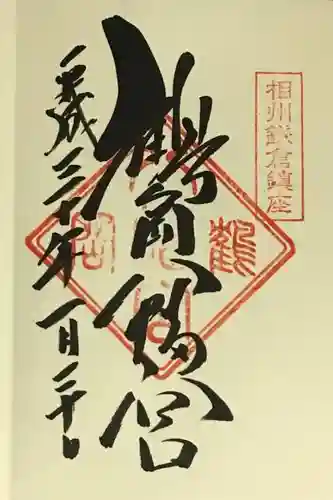 相州鎌倉鎮座
鶴岡八幡宮
平成三十年一月二十日
鶴
岡